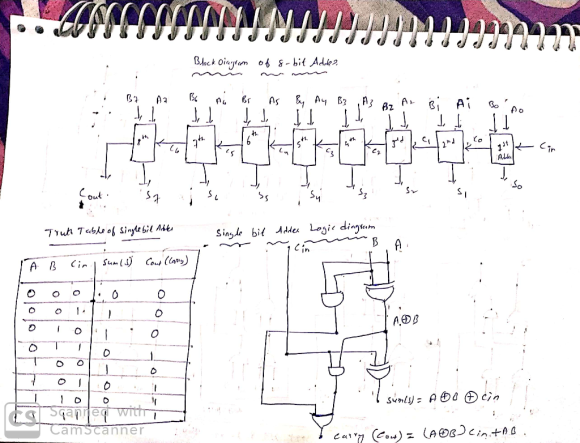 Block Diagram of 8-bit Adder
B7 A7 B6 A6 B5 A5 B4 A4 B3 A3 B2 A2 B1 A1 B0 A0
8th 7th 6th 5th 4th 3rd 2nd 1st Adder
C6 C5 C4 C3 C2 C1 C0 Cin
Cout S7 S6 S5 S4 S3 S2 S1 S0
Truth Table of Single bit Adder
A B Cin Sum(S) Cout (Carry)
0 0 0 0 0
0 0 1 1 0
0 1 0 1 0
0 1 1 0 1
1 0 0 1 0
1 0 1 0 1
1 1 0 0 1
1 1 1 1 1
Single bit Adder Logic diagram
Cin B A
A⊕B
Sum(S) = A⊕B⊕Cin
Carry (Cout) = (A⊕B)Cin + AB
CS Scanned with
CamScanner